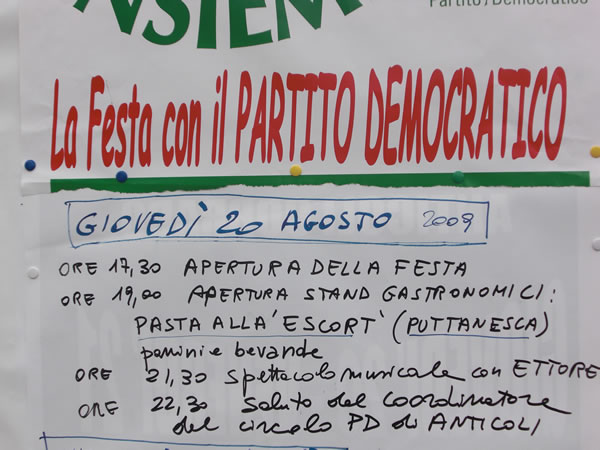 Partito/Democratico
La Festa con il PARTITO DEMOCRATICO
GIOVEDÌ 20 AGOSTO 2009
ORE 17,30 APERTURA DELLA FESTA
ORE 19,00 APERTURA STAND GASTRONOMICI:
PASTA ALLA 'ESCORT' (PUTTANESCA)
panini e bevande
ORE 21,30 spettacolo musicale con ETTORE
ORE 22,30 Saluto del Coordinatore
del circolo PD di ANTICOLI